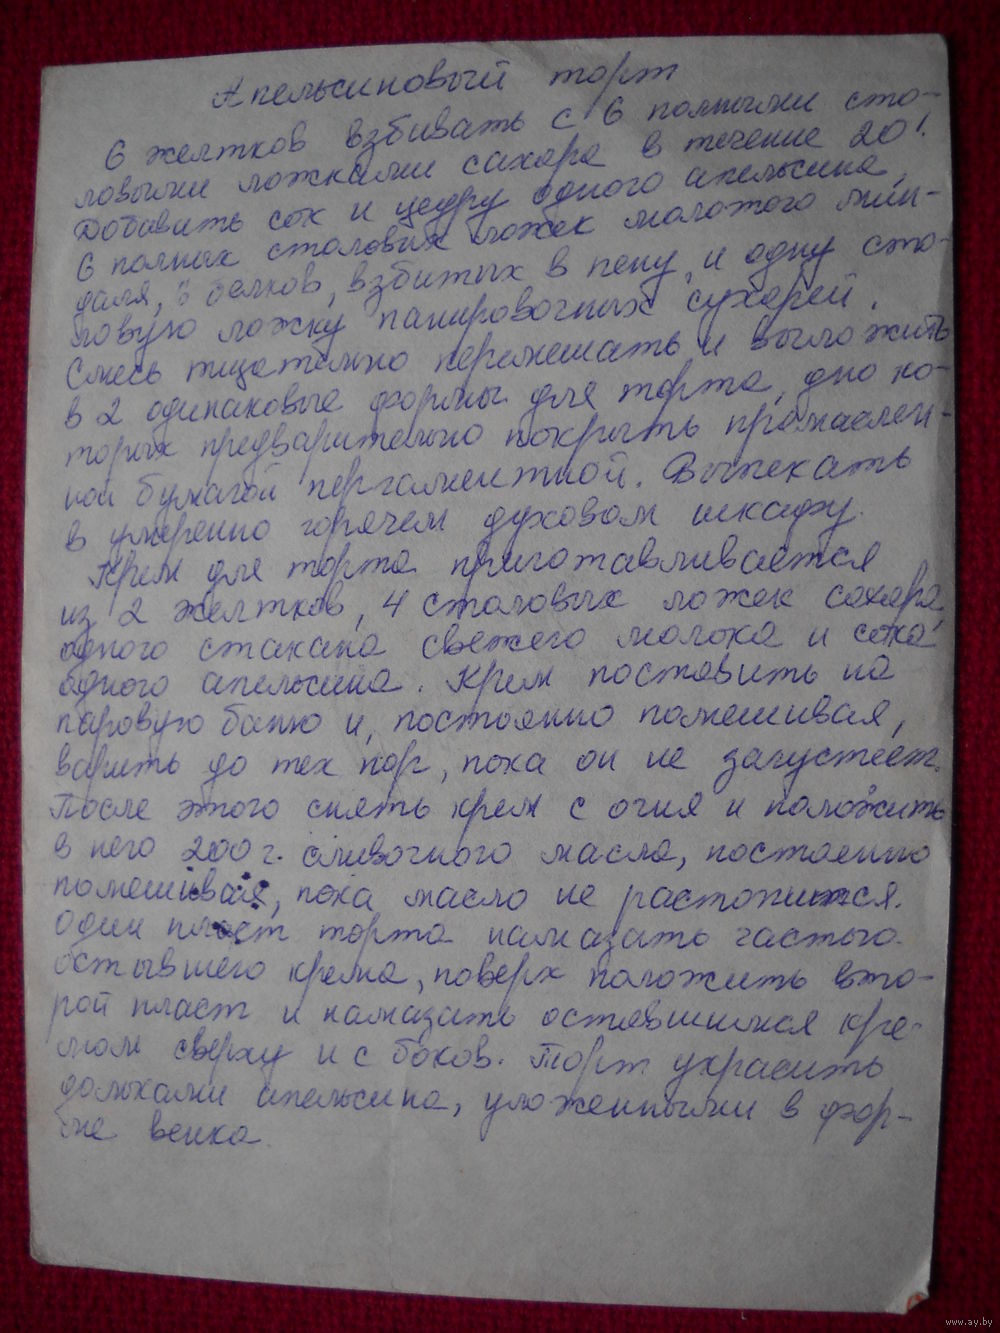 Апельсиновый торт
6 желтков взбивать с 6 полными сто-
ловыми ложками сахара в течение 20'.
Добавить сок и цедру одного апельсина,
6 полных столовых ложек молотого мин-
даля, 6 белков, взбитых в пену, и одну сто-
ловую ложку панировочных сухарей.
Смесь тщательно перемешать и выложить
в 2 одинаковые формы для торта, дно ко-
торых предварительно покрыть промаслен-
ной бумагой пергаментной. Выпекать
в умеренно горячем духовом шкафу.
Крем для торта приготавливается
из 2 желтков, 4 столовых ложек сахара,
одного стакана свежего молока и сока
одного апельсина. Крем поставить на
паровую баню и, постоянно помешивая,
варить до тех пор, пока он не загустеет.
После этого снять крем с огня и положить
в него 200 г. сливочного масла, постоянно
помешивая, пока масло не растопится.
Один пласт торта намазать частью
остывшего крема, поверх положить вто-
рой пласт и намазать оставшимся кре-
мом сверху и с боков. Торт украсить
дольками апельсина, уложенными в фор-
ме венка.
www.ay.by